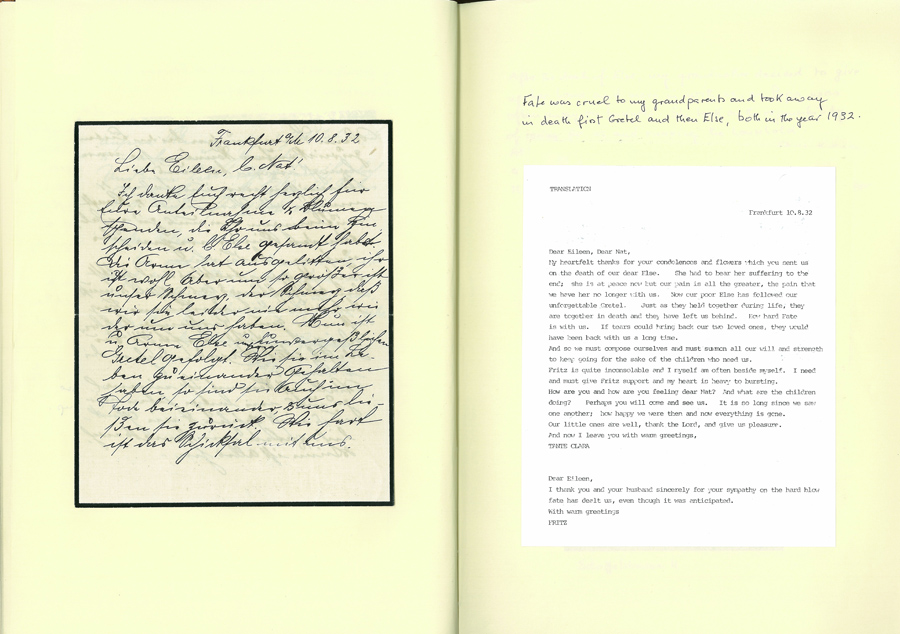 Frankfurt a/M 10.8.32
Liebe Eileen, l. Nat!
Ich danke Euch recht herzlich für
Eure Anteilnahme & Blumen-
spenden, die Ihr uns beim Hin-
scheiden u. l. Else gesandt habt.
Die Arme hat ausgelitten, ihr
ist wohl. Aber um so größer ist
unser Schmerz, der Schmerz daß
wir sie leider nicht mehr
um uns haben. Nun ist
u. arme Else unvergeßlichen
Gretel gefolgt. Wie sie im Le-
ben zueinander gehalten
haben so sind sie auch im
Tode beieinander & uns lie-
ßen sie zurück. Wie hart
ist das Schicksal mit uns.
Fate was cruel to my grandparents and took away
in death first Gretel and then Else, both in the year 1932.
TRANSLATION
Frankfurt 10.8.32
Dear Eileen, Dear Nat,
My heartfelt thanks for your condolences and flowers which you sent us
on the death of our dear Else. She had to bear her suffering to the
end; she is at peace now but our pain is all the greater, the pain that
we have her no longer with us. Now our poor Else has followed our
unforgettable Gretel. Just as they held together during life, they
are together in death and they have left us behind. How hard Fate
is with us. If tears could bring back our two loved ones, they would
have been back with us a long time.
And so we must compose ourselves and must summon all our will and strength
to keep going for the sake of the children who need us.
Fritz is quite inconsolable and I myself am often beside myself. I need
and must give Fritz support and my heart is heavy to bursting.
How are you and how are you feeling dear Nat? And what are the children
doing? Perhaps you will come and see us. It is so long since we saw
one another; how happy we were then and now everything is gone.
Our little ones are well, thank the Lord, and give us pleasure.
And now I leave you with warm greetings,
TANTE CLARA
Dear Eileen,
I thank you and your husband sincerely for your sympathy on the hard blow
fate has dealt us, even though it was anticipated.
With warm greetings
FRITZ